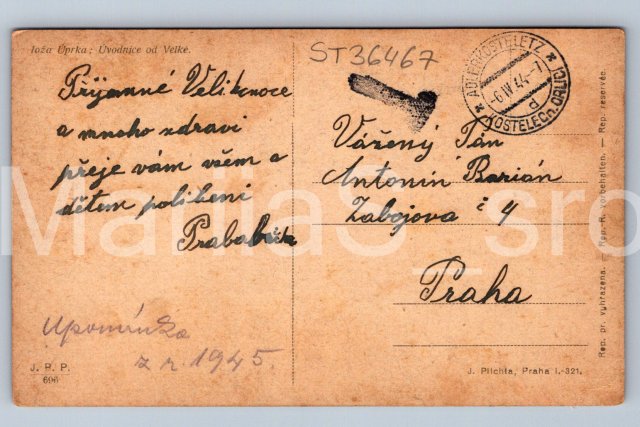 Joža Úprka: Úvodnice od Velké.
ST36467
ADLERKOSTELETZ
-6.IV.44.-7
d
KOSTELEC n. ORLICÍ
Příjemné Velikonoce
a mnoho zdraví
přeje vám všem a
dětem políbení
Prababička
Vážený Pán
Antonín Barián
Zabojova č 4
Praha
Upomínka
z r. 1945.
J. R. P.
696
J. Plichta, Praha I.-321.
Rep. pr. vyhrazena. — Rep. R. vorbehalten. — Rep. reservée.
MarijaS_sro